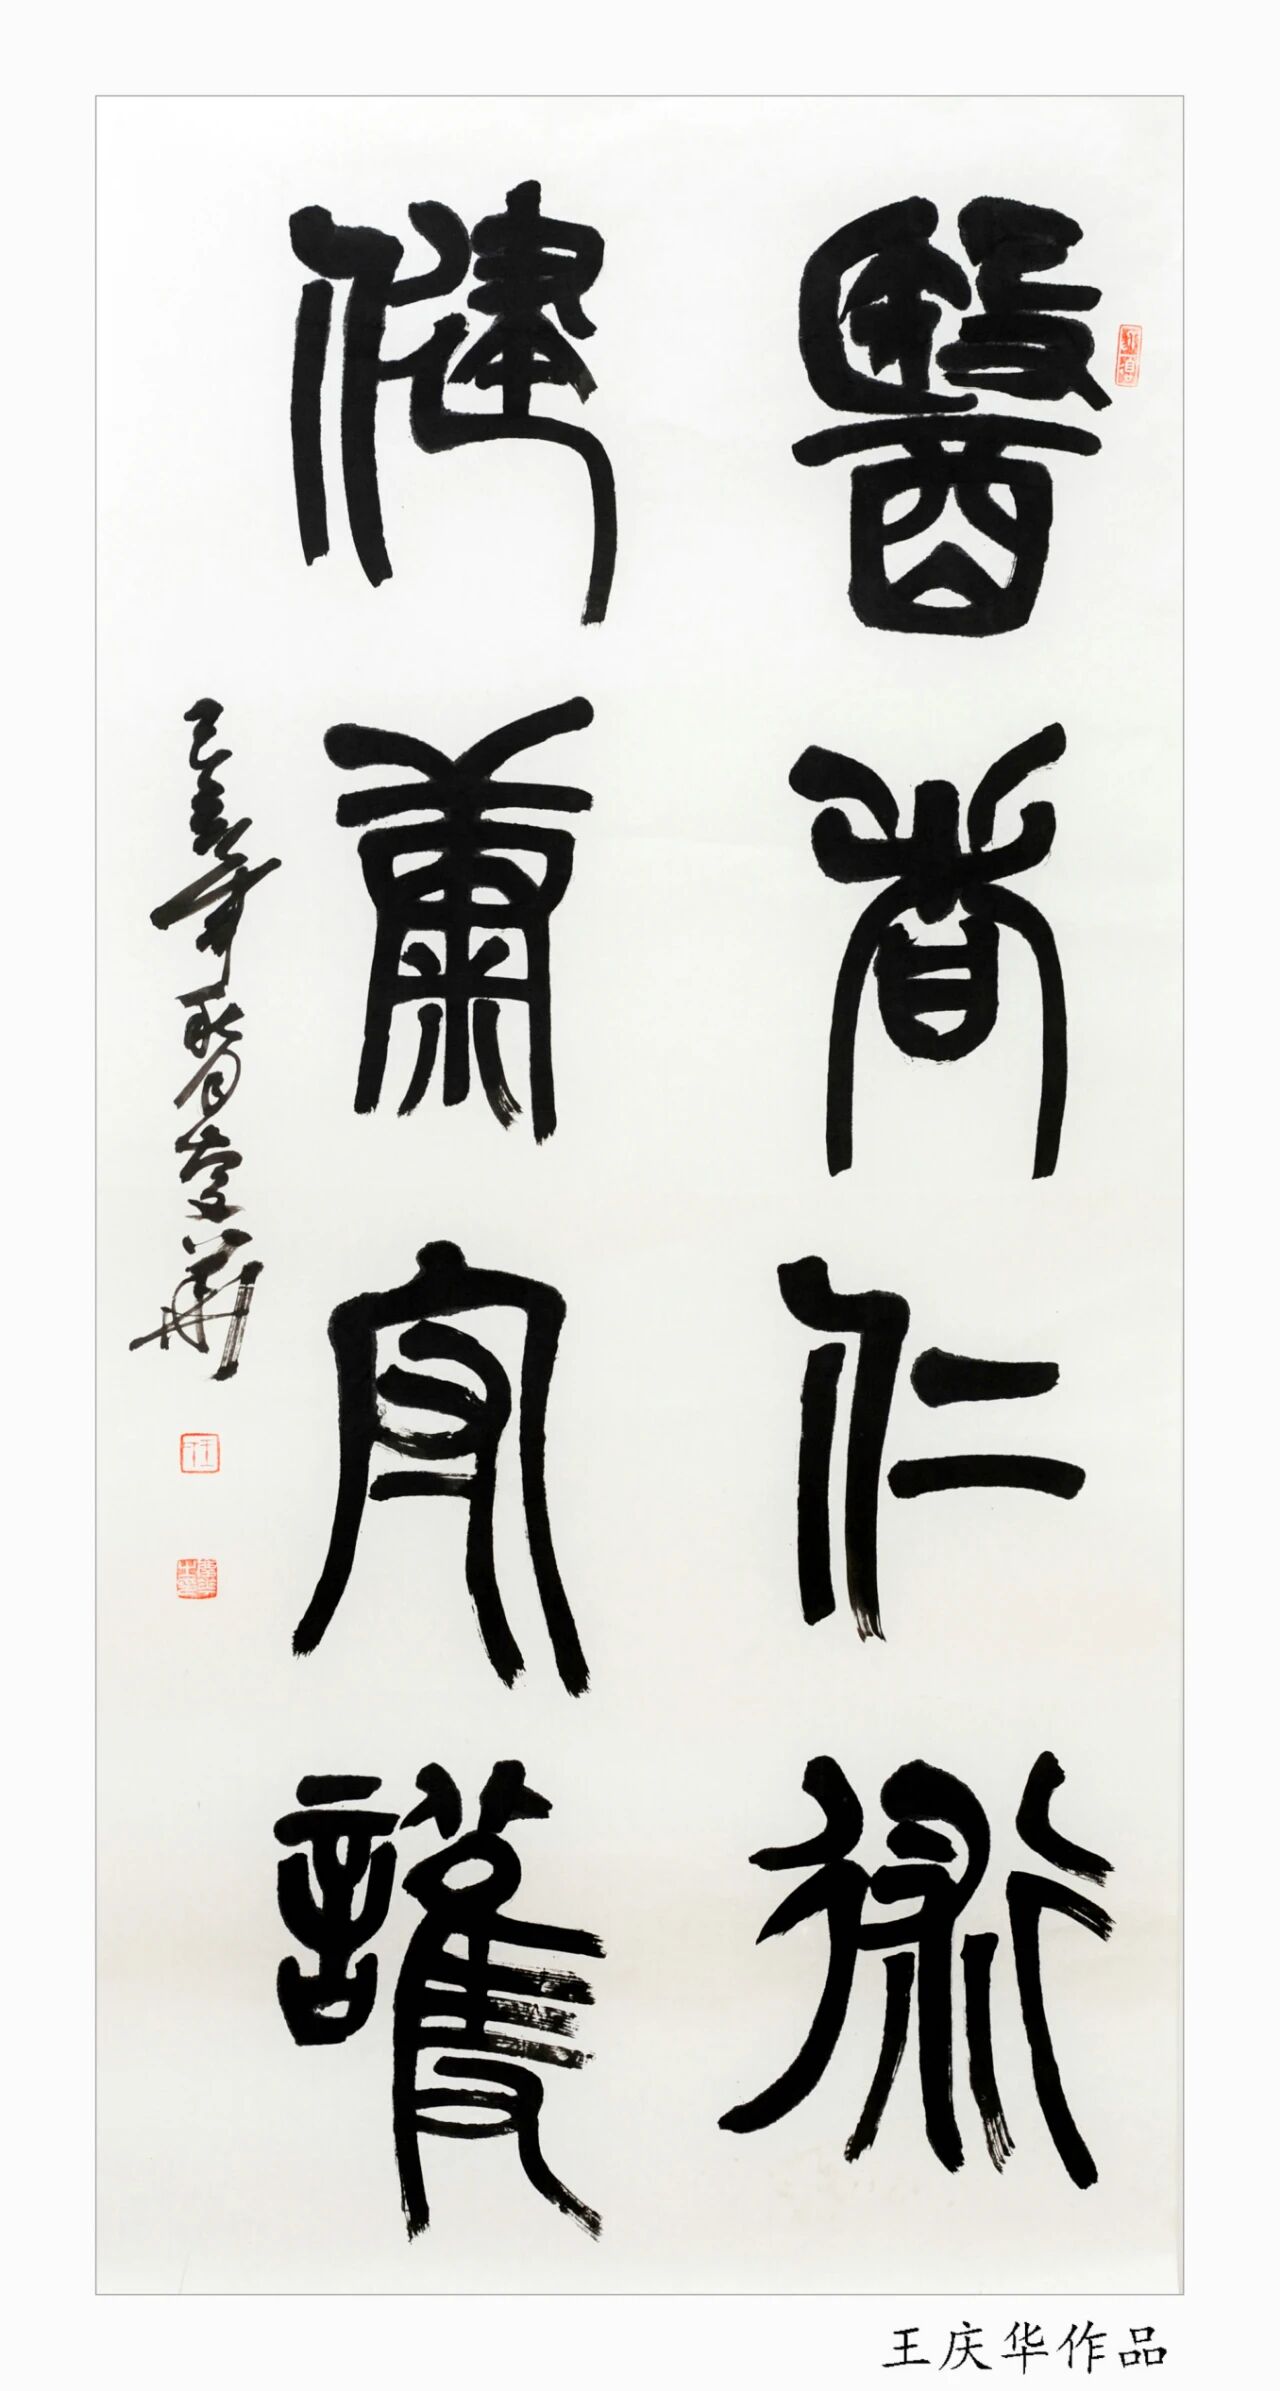 醫者仁術
健康守護
己亥年秋月慶華
王庆华作品